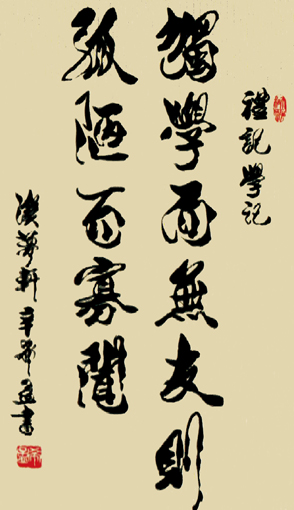 禮記學記
獨學而無友則
孤陋而寡聞
夢軒辛卯書